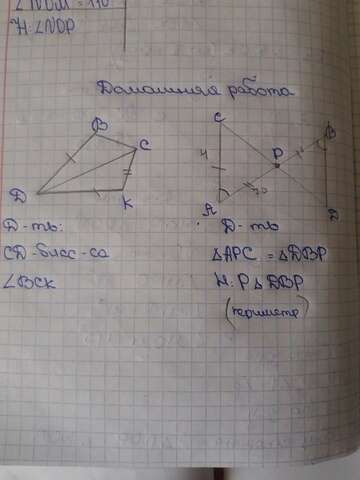 ∠NOM = 110
Н: ∠NOP
Домашняя работа
B
C
D
K
C
B
4
P
A
10
D
D-ть:
CD-бисс-са
∠BCK
D-ть
△APC = △DBP
Н: P△DBP
(периметр)